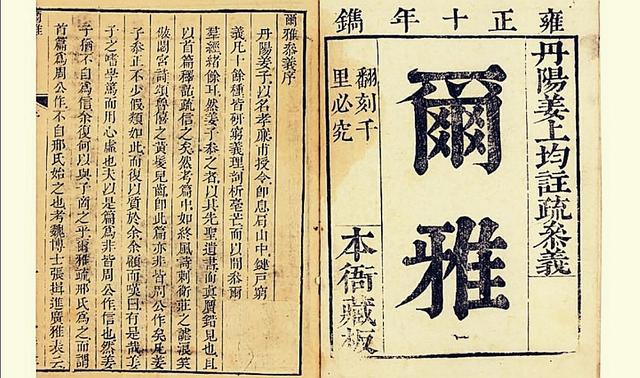 雍正十年鐫
丹陽姜上均註疏叅義
爾雅
翻刻千
里必究
本衙藏板
爾雅叅義序
丹陽姜子以名孝廉甫授令即息局山中鍵戶窮
義凡十餘種皆研窮義理剖析毫芒而以間叅爾
羣經緒餘耳然姜子叅之者以其先聖遺書而眞贋錯見也且
以首篇釋詁疏信之矣然考篇中如終風詩刺衛莊之謔浪笑
傲閟宮詩頌魯僖之黃髮兒齒即此篇亦非皆周公作矣凡姜
子叅正不少假類如此而復以質於余余顧而嘆曰有是哉姜
子之嗜學篤而用心虛也夫以是篇爲非皆周公作信也然姜
子猶不自爲信余復何以與子商之乎爾雅疏邢氏爲之而謂
首篇爲周公作不自邢氏始之也考魏博士張揖進廣雅表云